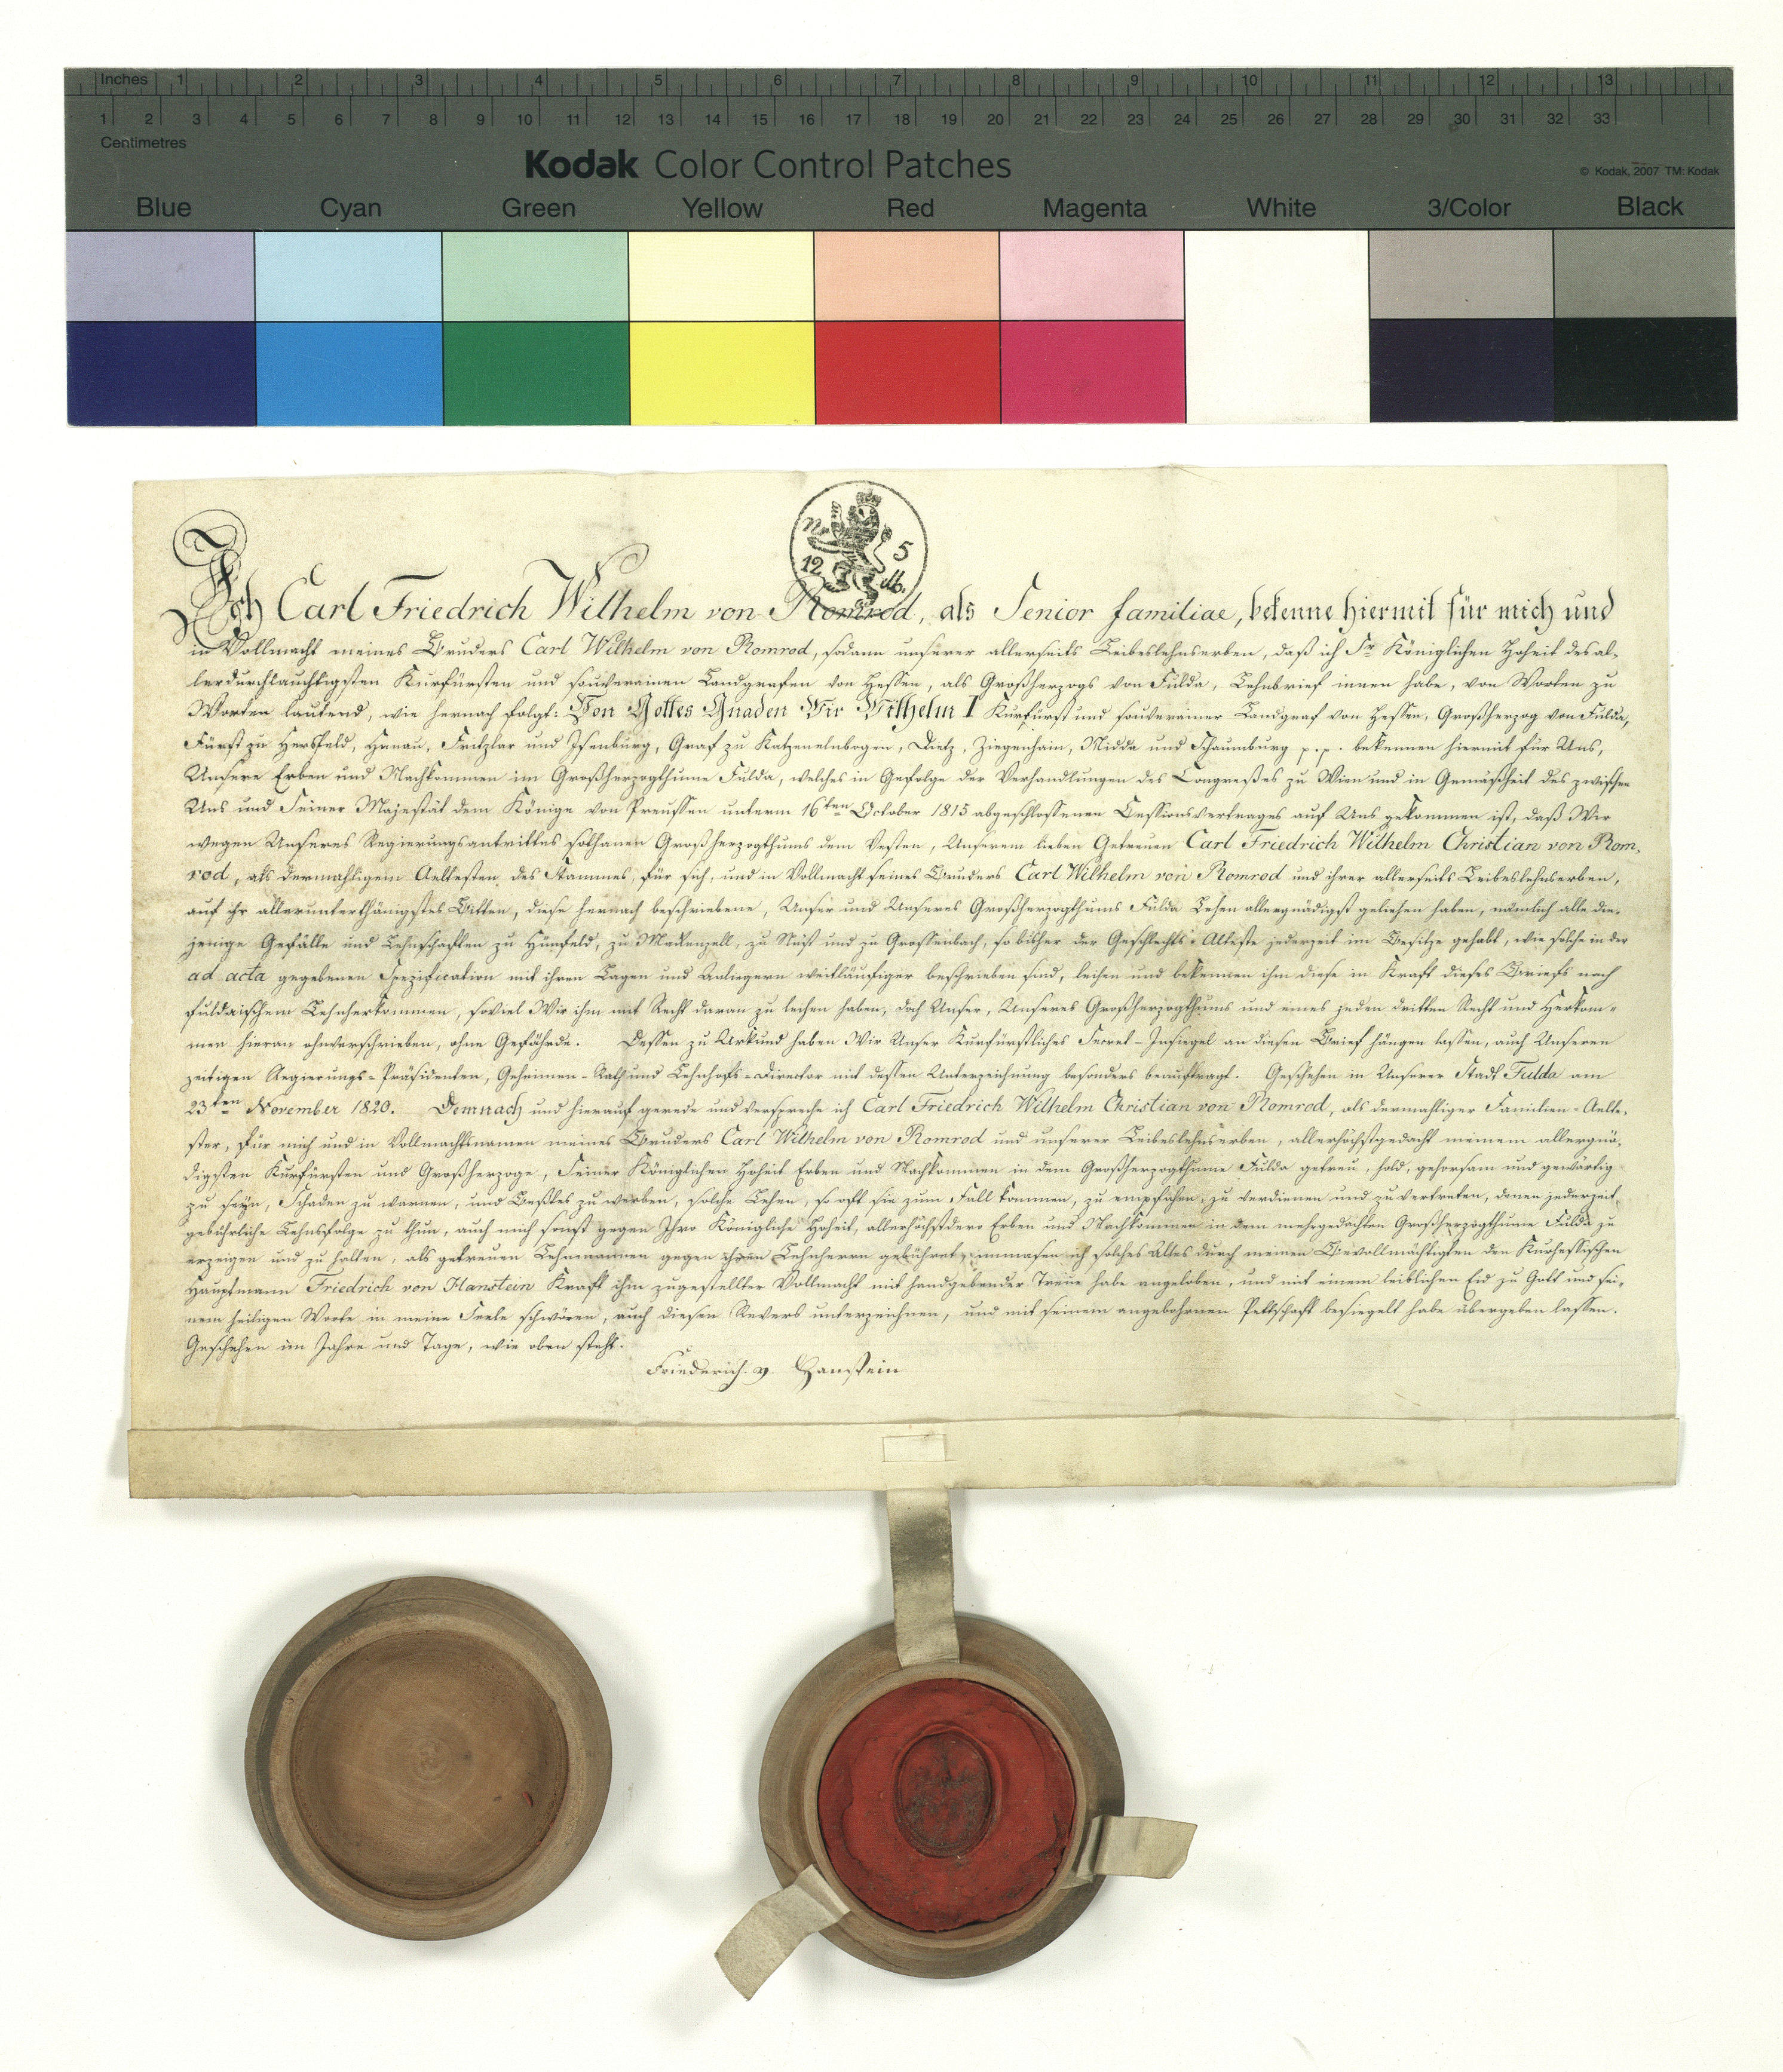 Inches 1 2 3 4 5 6 7 8 9 10 11 12 13
1 2 3 4 5 6 7 8 9 10 11 12 13 14 15 16 17 18 19 20 21 22 23 24 25 26 27 28 29 30 31 32 33
Centimetres
Kodak Color Control Patches
© Kodak, 2007 TM: Kodak
Blue Cyan Green Yellow Red Magenta White 3/Color Black
No 5
12 M.
Ich Carl Friedrich Wilhelm von Romrod, als Senior familiae, bekenne hiermit für mich und
in Vollmacht meines Bruders Carl Wilhelm von Romrod, sodann unserer allerseits Leibeslehnserben, daß ich Sr Königlichen Hoheit des al-
lerdurchlauchtigsten Kurfürsten und souverainen Landgrafen von Hessen, als Großherzogs von Fulda, Lehnbrief innen habe, von Worten zu
Worten lautend, wie hernach folgt: Von Gottes Gnaden Wir Wilhelm I Kurfürst und souverainer Landgraf von Hessen, Großherzog von Fulda,
Fürst zu Hersfeld, Hanau, Fritzlar und Isenburg, Graf zu Katzenelnbogen, Dietz, Ziegenhain, Nidda und Schaumburg p. p. bekennen hiermit für Uns,
Unsere Erben und Nachkommen im Großherzogthume Fulda, welches in Gefolge der Verhandlungen des Congreßes zu Wien und in Gemäßheit des zwischen
Uns und Seiner Majestät dem Könige von Preussen unterm 16ten October 1815 abgeschlossenen Cessionsvertrages auf Uns gekommen ist, daß Wir
wegen Unseres Regierungsantrittes sothanen Großherzogthums dem Vesten, Unserem lieben Getreuen Carl Friedrich Wilhelm Christian von Rom-
rod, als dermahligem Aeltesten des Stammes, für sich, und in Vollmacht seines Bruders Carl Wilhelm von Romrod und ihrer allerseits Leibeslehnserben,
auf ihr allerunterthänigstes Bitten, diese hernach beschriebene, Unser und Unseres Großherzogthums Fulda Lehen allergnädigst geliehen haben, nämlich alle die-
jenige Gefälle und Lehnschaften zu Hünfeld, zu Mackenzell, zu Nüst und zu Grossenbach, so bisher der Geschlechts-Älteste jederzeit im Besitze gehabt, wie solche in der
ad acta gegebenen Spezification mit ihren Lagen und Anliegern weitläufiger beschrieben sind, leihen und bekennen ihm diese in Kraft dieses Briefs nach
fuldaischem Lehnherkommen, soviel Wir ihm mit Recht daran zu leihen haben, doch Unser, Unseres Großherzogthums und eines jeden dritten Recht und Herkom-
men hieran ohnverschrieben, ohne Gefährde. Dessen zu Urkund haben Wir Unser Kurfürstliches Secret-Insiegel an diesen Brief hängen lassen, auch Unseren
zeitigen Regierungs-Präsidenten, Geheimen-Rath und Lehnhofs-Director mit dessen Unterzeichnung besonders beauftragt. Geschehen in Unserer Stadt Fulda am
23ten November 1820. Demnach und hierauf gerede und verspreche ich Carl Friedrich Wilhelm Christian von Romrod, als dermahliger Familien-Aelte-
ster, für mich und in Vollmachtsnamen meines Bruders Carl Wilhelm von Romrod und unserer Leibeslehnserben, allerhöchstgedacht meinem allergnä-
digsten Kurfürsten und Großherzoge, Seiner Königlichen Hoheit Erben und Nachkommen in dem Großherzogthume Fulda getreu, hold, gehorsam und gewärtig
zu seyn, Schaden zu warnen, und Beßtes zu werben, solche Lehen, so oft sie zum Fall kommen, zu empfahen, zu verdienen und zu vertreten, denen jederzeit
gebührliche Lehnsfolge zu thun, auch mich sonst gegen Ihro Königliche Hoheit, allerhöchstdero Erben und Nachkommen in dem mehrgedachten Großherzogthume Fulda zu
erzeigen und zu halten, als getreuen Lehnmannen gegen ihren Lehnherrn gebühret, immasen ich solches Alles durch meinen Bevollmächtigten den Kurhessischen
Hauptmann Friedrich von Hanstein Kraft ihm zugestellter Vollmacht mit handgebender Treue habe angeloben, und mit einem leiblichen Eid zu Gott und sei-
nem heiligen Worte in meine Seele schwören, auch diesen Revers unterzeichnen, und mit seinem angebohrnen Pettschaft besiegelt habe übergeben lassen.
Geschehen im Jahre und Tage, wie oben steht.
Friederich. v. Hanstein